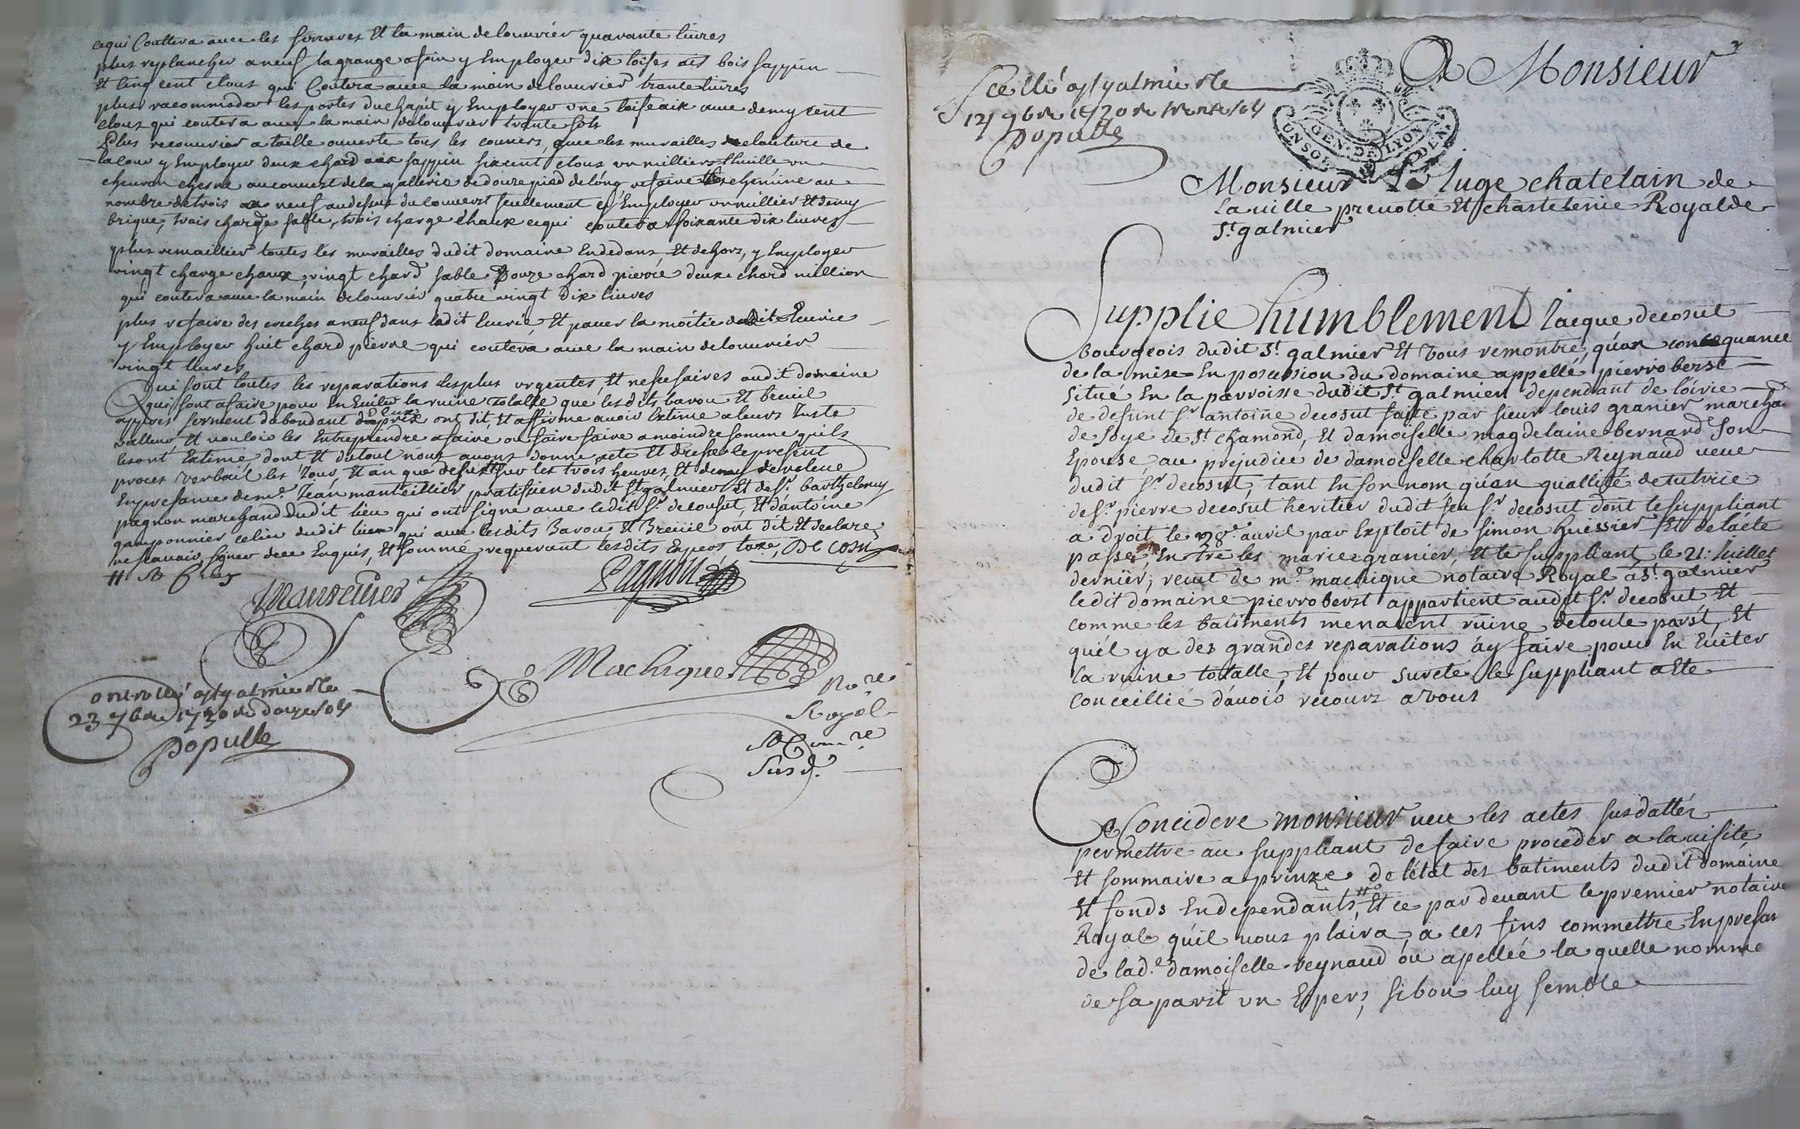 cequi Couttera avec les ferrures Et la main delouvrier quarante livres
plus replancher aneuf lagrange afoin y Employer dix toises ais bois sappin
Et Cinq cent clous qui Coutera avec la main delouvrier trante livres
plus racommoder les portes duchapit y Employer une toise aix avec demy cent
Clous qui coutera avec la main delouvrier trante sols
Plus recouvrir a taille ouverte tous les couverts, avec les murailles de clauture de
la cour y Employer deux chard aix sappin sixcent clous un milliers thuille un
chevron chesne au couvert de la gallerie dedouze pied de long refaire les cheminé au
nombre de trois a neuf audessus du couvert seulement y Employer un millier Et demy
brique, trois charge sable, trois charge chaux cequi coutera soixante dix livres
plus remaillier toutes les murailles dudit domaine Endedans Et dehors, y Employer
vingt charge chaux, vingt chard sable Douze chard pierre deux chard million
qui coutera avec la main delouvrier quatre vingt dix livres
plus refaire des creches aneuf dans ladit Ecurie Et paver la moitié dudit Ecurie
y Employer huit chard pierre qui coutera avec la main delouvrier
vingt livres
Qui sont toutes les reparations lesplus urgentes, Et nessesaires audit domaine
qui sont afaire pour En Eviter la ruine totalle que lesdits bavou Et breuil
appres serment dabondant d'eux pris ont dit, Et affirme avoir Extime a leurs Juste
valleur Et vouloir les Entreprendre afaire ou faire faire a moindre somme quils
lesont Extimé dont Et dutout nous avons donné acte Et dressé lepresent
proces verbail les Jour, Et an que dessus sur les trois heures, Et demy de relevé
Enpresance de me. Jean manteillier pratissien dudit St galmier Et de sr. barthelemy
pagnon marchand dudit lieu qui ont signé avec ledit sr decosut, Et d'antoine
gamponnier celier dudit lieu qui avec lesdits Bavou Et Breuil ont dit Et declaré
ne scavoir signer dece Enquis, Et sommé requerant lesdits Expers taxe, DE COSUT
Manteillier
Pagnon
Machique
Nore
Royal
Comre
Susd.
ontrollé a st galmier le
23 7bre 1730 R douze sols
Populle
A Monsieur
Scellé a st galmier le
12 9bre 1730 R trente sols
Populle
GEN. DE LYON
UN SOL
DEN.
Monsieur Le Juge chatelain de
la ville prevotté Et chastelenie Royal de
St galmier
Supplie humblement Jacque decosut
Bourgeois dudit St galmier Et vous remontre, qu'an consequance
de la mise En possession du domaine appellé pierroberst
situé En la parroisse dudit St galmier dependant de l'oirie
de defunt sr antoine decosut faite par sieur louis granier marchan
de soye de St chamond, Et damoiselle magdelaine bernard son
Epouse, au prejudice de damoiselle charlotte Reynaud veuve
dudit sr decosut, tant En son nom qu'an quallité de tutrice
de sr pierre decosut heritier dudit feu sr decosut dont le suppliant
a droit le 28e avril par Exploit de simon huissier Et de l'acte
passé, Entre les mariés granier, Et le suppliant le 21e Juillet
dernier, receut de me machique notaire Royal à St galmier
ledit domaine pierroberst appartient audit sr decosut Et
comme les batiments menacent ruine detoute parst, Et
qu'il y a des grandes reparations à y faire pour En Eviter
la ruine totalle, Et pour sureté le suppliant a été
conceillié d'avoir recours a vous
Ce Concideré monsieur veu les actes susdattés
permettre au suppliant de faire proceder a la visite,
Et sommaire a prinze de l'état des batiments dudit domaine
Et fonds Endependants, Et ce par devant le premier notaire
Royal qu'il vous plaira, a ces fins commettre Enpresan
de lad.e damoiselle reynaud ou apellée la quelle nomme
de sa parst un Expers, sibon luy semble